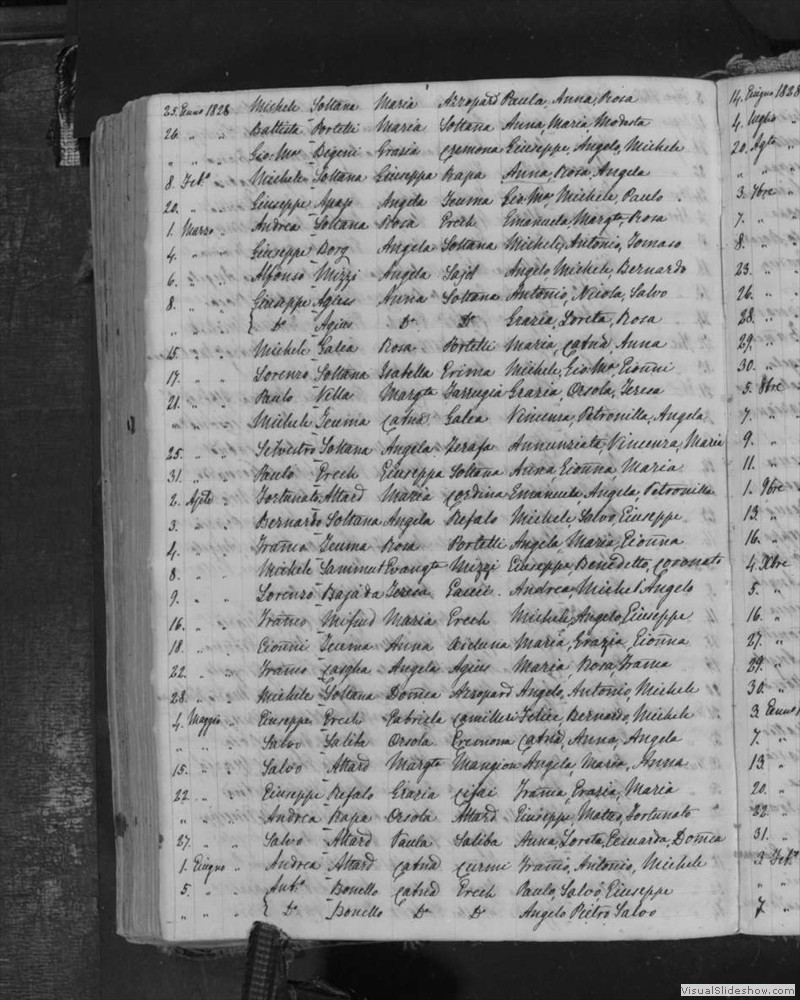 25. Enno 1828 Michele Soltana Maria Azzopard Paula, Anna, Rosa
26. " " Battista Portelli Maria Soltana Anna, Maria, Modesta
" " " Gio: Ma Degeni Grazia Cremona Giuseppe, Angelo, Michele
8. Feb.o " Michele Soltana Giuseppa Rapa Anna, Rosa, Angela
20. " " Giuseppe Apap Angela Teuma Gio Ma Michele, Paulo
1. Marzo " Andrea Soltana Rosa Grech Emanuela, Margta, Rosa
4. " " Giuseppe Borg Angela Soltana Michele, Antonio, Tomaso
6. " " Alfonso Mizzi Angela Sajd Angelo Michele, Bernardo
8. " " Giuseppe Agius Anna Soltana Antonio, Nicola, Salvo
" " " Do Agius Do Do Grazia, Loreta, Rosa
15. " " Michele Galea Rosa Portelli Maria, Catna, Anna
17. " " Lorenzo Soltana Isabella Grima Michele, Gio Ma, Gionni
21. " " Paulo Vella Margta Farrugia Grazia, Orsola, Teresa
" " " Michele Teuma Catna Galea Vincenza, Petronilla, Angela
25. " " Silvestro Soltana Angela Zerafa Annunziata, Vincenza, Maria
31. " " Paulo Grech Giuseppa Soltana Anna, Gionna Maria
2. Aple " Fortunato Attard Maria Cordina Emanuele, Angela, Petronilla
3. " " Bernardo Soltana Angela Refalo Michele, Salvo, Giuseppe
4. " " Franco Teuma Rosa Portelli Angela, Maria, Gionna
8. " " Michele Sammut Evangta Mizzi Giuseppe Benedetto, Coronato
9. " " Lorenzo Bajada Teresa Gauci Andrea, Michel'Angelo
16. " " Franco Mifsud Maria Grech Michele, Angelo, Giuseppe
18. " " Gionni Teuma Anna Aiduna Maria, Grazia, Gionna
22. " " Franco Casgha Angela Agius Maria, Rosa, Franca
28. " " Michele Soltana Domca Azzopard Angelo, Antonio, Michele
4. Maggio " Giuseppe Grech Gabriela Camilleri Felice, Bernardo, Michele
" " " Salvo Saliba Orsola Cremona Catna, Anna, Angela
15. " " Salvo Attard Margta Mangion Angela, Maria, Anna
22. " " Giuseppe Refalo Grazia Cefai Franca, Grazia, Maria
" " " Andrea Rapa Orsola Attard Giuseppe, Matteo, Fortunato
27. " " Salvo Attard Paula Saliba Anna, Loreta, Edvarda, Domca
1. Giugno " Andrea Attard Catna Curmi Franco, Antonio, Michele
5. " " Anto Bonello Catna Grech Paulo, Salvo, Giuseppe
" " " Do Bonello Do Do Angelo, Pietro, Salvo
14. Giugno 1828
4. luglio
20. Agto
" "
3. 7bre
7. "
8. "
23. "
26. "
28. "
29. "
30. "
5. 8bre
7. "
9. "
11. "
1. 9bre
13. "
16. "
4. Xbre
5. "
16. "
27. "
29. "
30. "
3. Genno 1
7. "
13. "
20. "
22. "
31. "
3. Feb.o
" "
7 "
VisualSlideshow.com